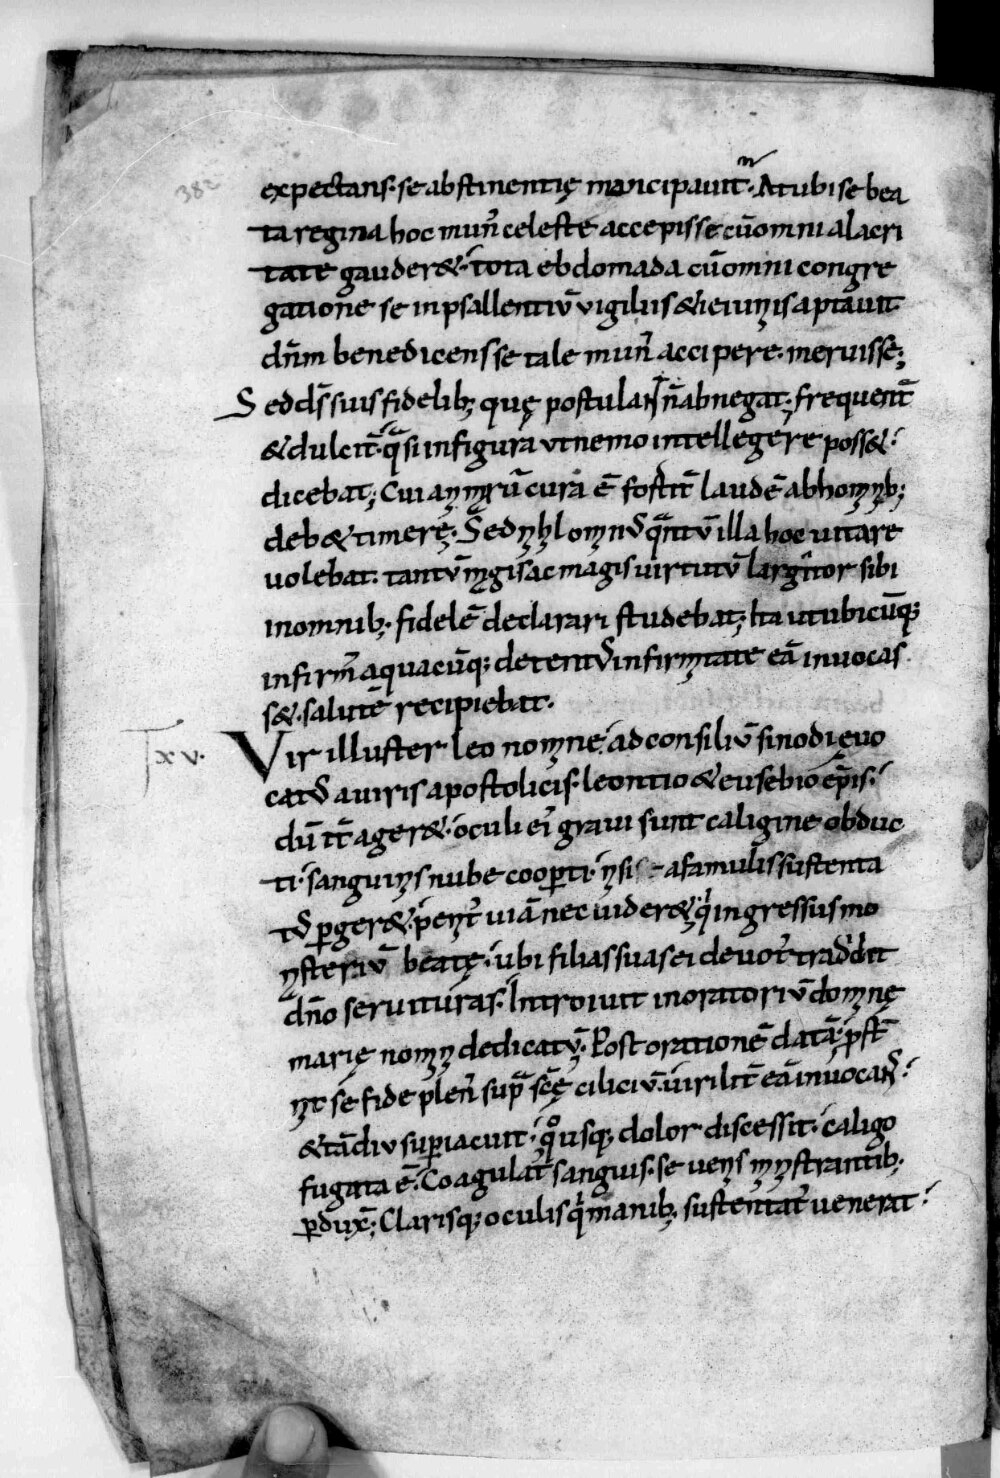 382
expectans· se abstinentię mancipauit· At ubi se bea
ta regina hoc mun̄ celeste accepisse cū omni alacri
tate gauder&· tota ebdomada cū omni congre
gatione se in psallentiū uigiliis & ieiuniis aptauit
dn̄m benedicens se tale mun̄ accipere meruisse;
Sed ds̄ suis fidelib; quę postulant n̄ abnegat; frequent̄
& dulcit̄· qͣsi in figura ut nemo intellegere poss&·
dicebat; Cui animarū cura ē fortit̄ laudē ab hominib;
deb& timere; Sed nihilominus qͣntū illa hoc uitare
uolebat· tantū magis ac magis uirtutū largitor sibi
in omnib; fidelē declarari studebat; Ita ut ubicūq;
infirm̄ a quacūq; detentus infirmitate eā inuocas
s&· salutē recipiebat·
xv·
Vir illuster leo nomine· ad consiliū sinodi euo
catus a uiris apostolicis· leontio & eusebio ep̄is·
dū it̄ ager&· oculi ei graui sunt caligine obduc
ti· sanguinis nube cooperti· a famulis sustenta
tus perger&· uiā nec uider& qͥ ingressus mo
nisteriū beatę· ubi filias suas ei deuot̄ tradidit
dn̄o seruituras· Introiuit in oratoriū domnę
marię nomini dedicatū· Post orationē datā· prost̄
nit se fide plen̄ supͣ sc̄ę ciliciū· uirilit̄ eā inuocans·
& tādiu superiacuit· qͦusq; dolor discessit· caligo
fugata ē· Coagulat̄ sanguis· se uenis ministrantib;
perdux̄; Clarisq; oculis qͥ manib; sustentat̄ uenerat·